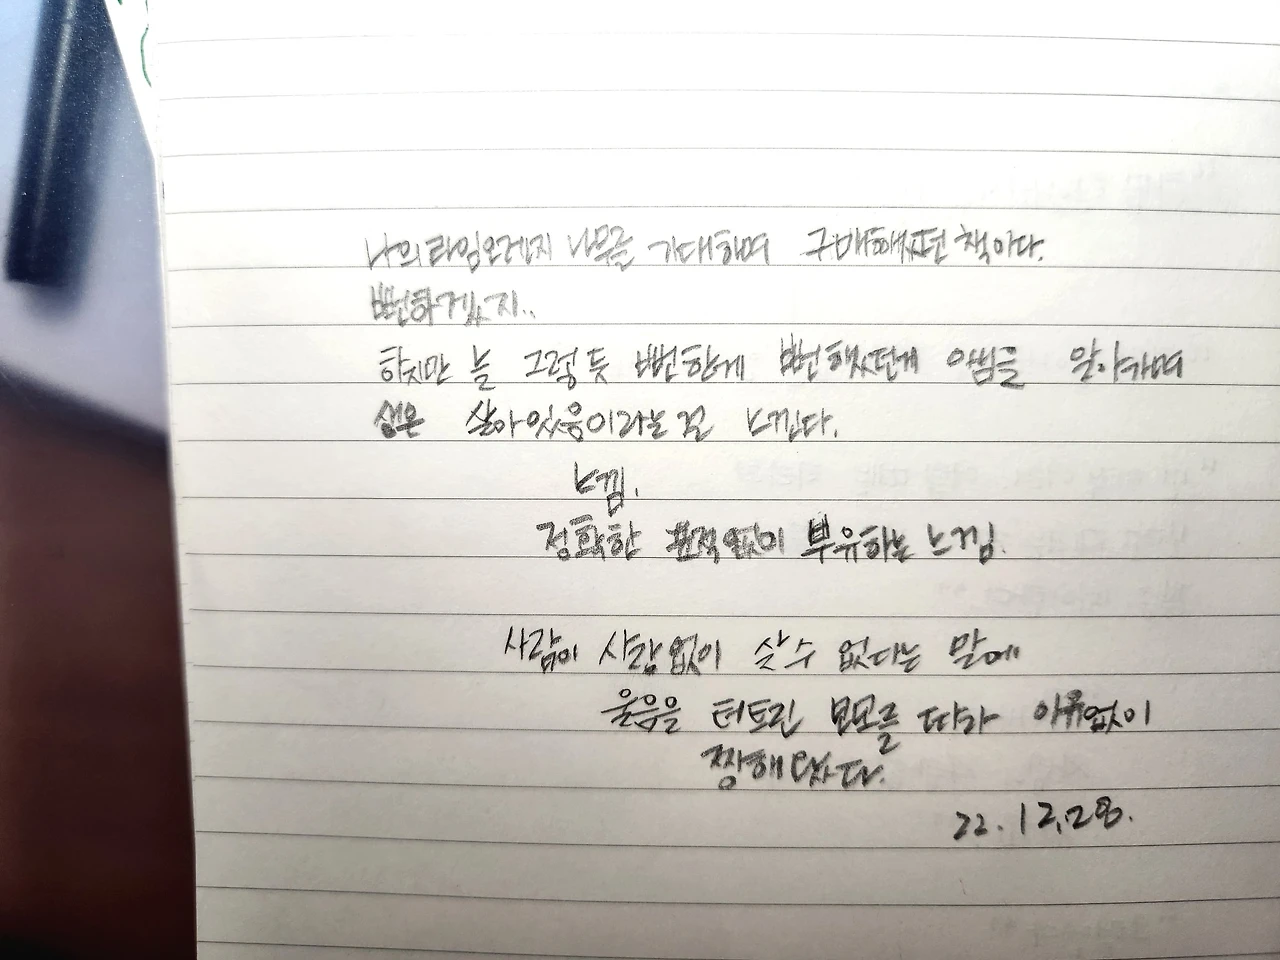 나의 라임오렌지 나무를 기대하며 구매했던 책이다.
뻔하겠지..
하지만 늘 그렇듯 뻔한게 뻔했던게 아님을 알아가며
삶은 살아있음이라는 걸 느낀다.
느낌.
정확한 표적없이 부유하는 느낌.
사람이 사랑없이 살 수 없다는 말에
울음을 터트린 모모를 따라 이유없이
찡해 왔다.
22.12.28.